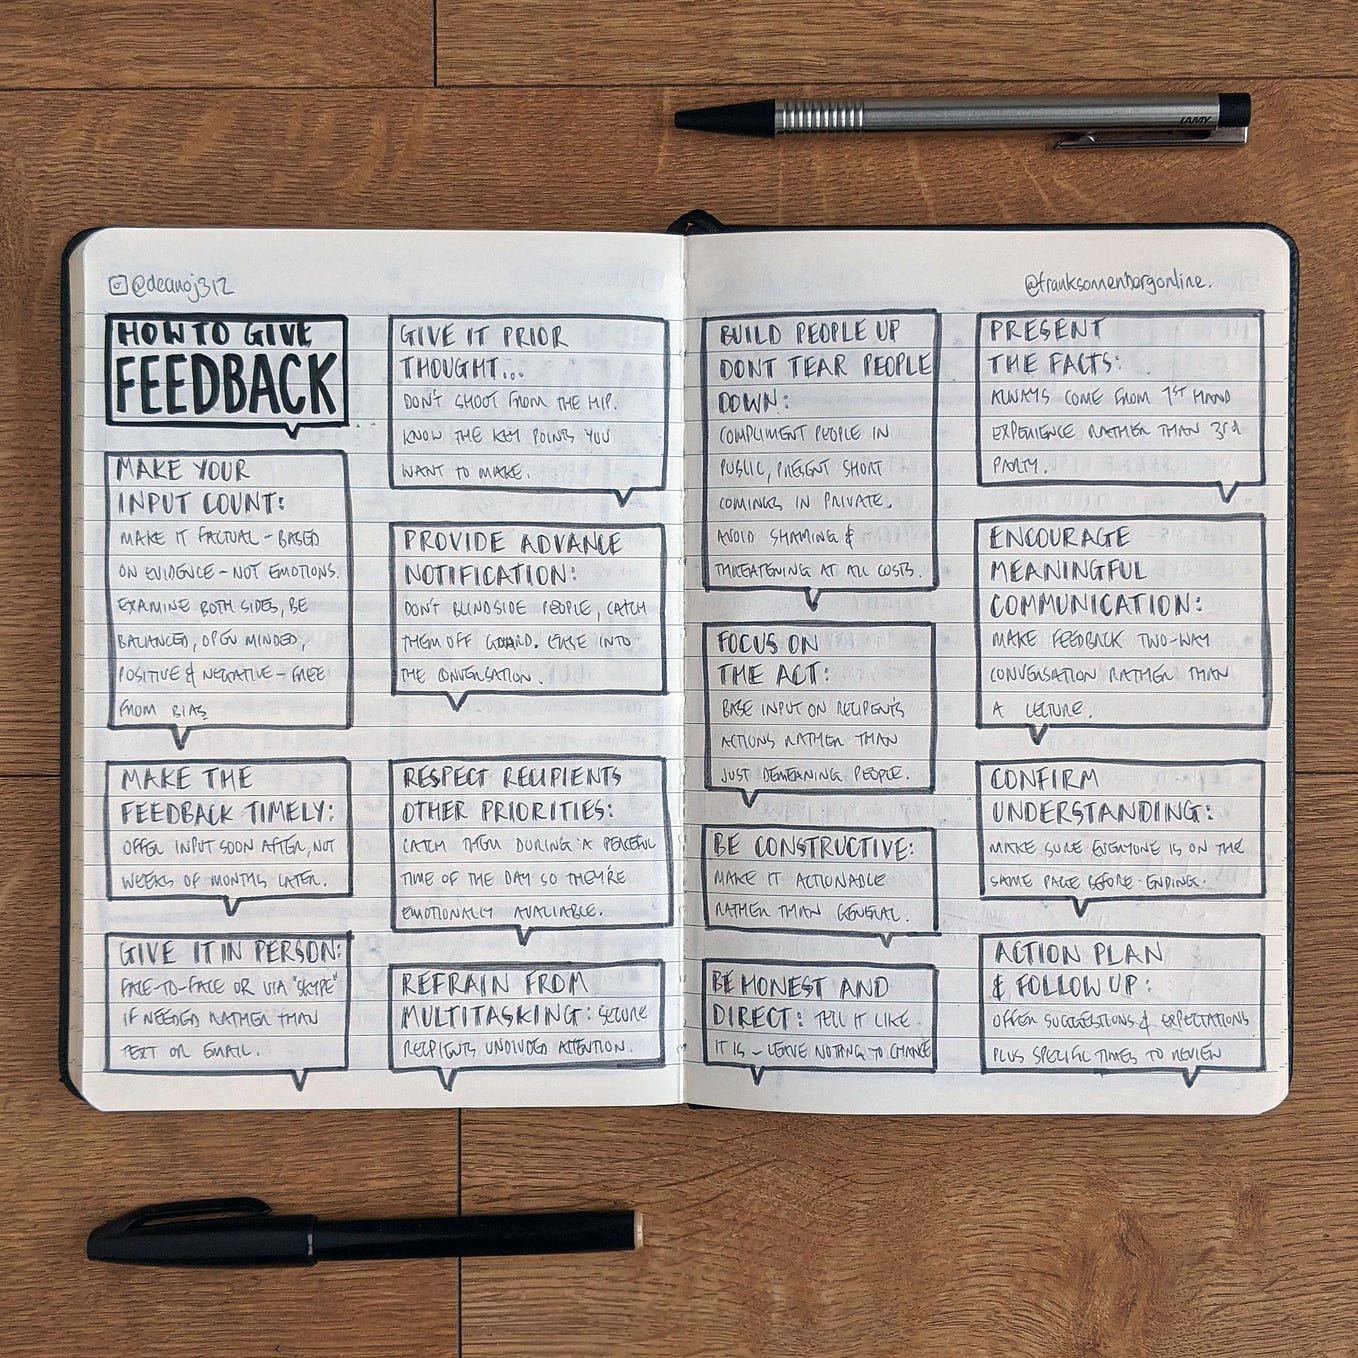 LAMY
@deanoj312
@franksonnenbergonline.
HOW TO GIVE
FEEDBACK
MAKE YOUR
INPUT COUNT:
MAKE IT FACTUAL - BASED
ON EVIDENCE - NOT EMOTIONS.
EXAMINE BOTH SIDES, BE
BALANCED, OPEN MINDED,
POSITIVE & NEGATIVE - FREE
FROM BIAS
MAKE THE
FEEDBACK TIMELY:
OFFER INPUT SOON AFTER, NOT
WEEKS OF MONTHS LATER.
GIVE IT IN PERSON:
FACE-TO-FACE OR VIA "SKYPE"
IF NEEDED RATHER THAN
TEXT OR EMAIL.
GIVE IT PRIOR
THOUGHT...
DON'T SHOOT FROM THE HIP.
KNOW THE KEY POINTS YOU
WANT TO MAKE.
PROVIDE ADVANCE
NOTIFICATION:
DON'T BLINDSIDE PEOPLE, CATCH
THEM OFF GUARD. EASE INTO
THE CONVERSATION.
RESPECT RECIPIENTS
OTHER PRIORITIES:
CATCH THEM DURING A PEACEFUL
TIME OF THE DAY SO THEY'RE
EMOTIONALLY AVALIABLE.
REFRAIN FROM
MULTITASKING: SECURE
RECIPIENTS UNDIVIDED ATTENTION.
BUILD PEOPLE UP
DONT TEAR PEOPLE
DOWN:
COMPLIMENT PEOPLE IN
PUBLIC, PRESENT SHORT
COMINGS IN PRIVATE.
AVOID SHAMING &
THREATENING AT ALL COSTS.
FOCUS ON
THE ACT:
BASE INPUT ON RECIPIENTS
ACTIONS RATHER THAN
JUST DEMEANING PEOPLE.
BE CONSTRUCTIVE:
MAKE IT ACTIONABLE
RATHER THAN GENERAL.
BE HONEST AND
DIRECT: TELL IT LIKE
IT IS - LEAVE NOTHING TO CHANCE
PRESENT
THE FACTS:
ALWAYS COME FROM 1ST HAND
EXPERIENCE RATHER THAN 3rd
PARTY.
ENCOURAGE
MEANINGFUL
COMMUNICATION:
MAKE FEEDBACK TWO-WAY
CONVERSATION RATHER THAN
A LECTURE.
CONFIRM
UNDERSTANDING:
MAKE SURE EVERYONE IS ON THE
SAME PAGE BEFORE ENDING.
ACTION PLAN
& FOLLOW UP:
OFFER SUGGESTIONS & EXPECTATIONS
PLUS SPECIFIC TIMES TO REVIEW